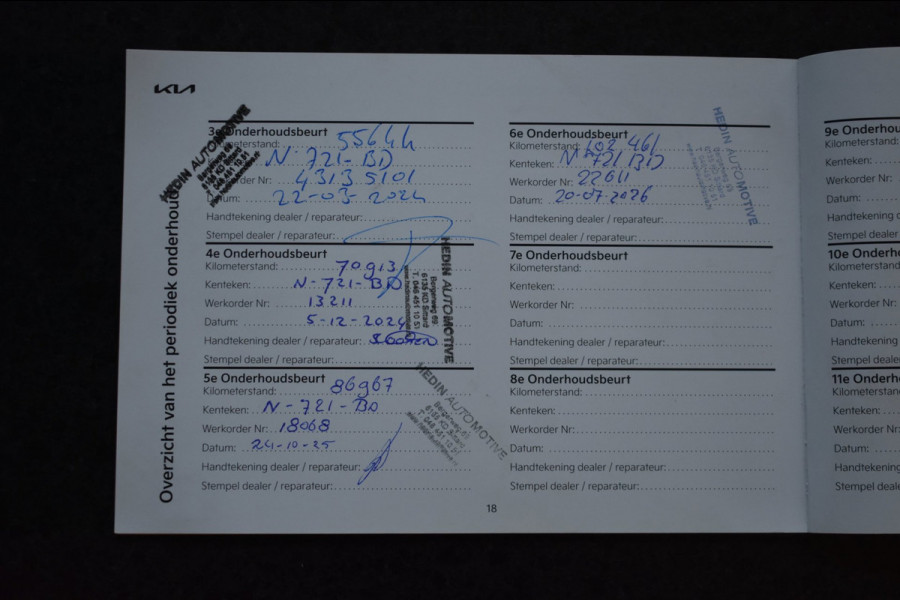 KIA
Overzicht van het periodiek onderhoud
3e Onderhoudsbeurt
Kilometerstand: 55644
N-721-BD
Werkorder Nr: 43135101
Datum: 22-03-2024
Handtekening dealer / reparateur:
Stempel dealer / reparateur:
HEDIN AUTOMOTIVE
Bergerweg 69
6135 KD Sittard
T. 046 451 10 51
4e Onderhoudsbeurt
Kilometerstand: 70913
Kenteken: N-721-BD
Werkorder Nr: 13211
Datum: 5-12-2024
Handtekening dealer / reparateur:
Stempel dealer / reparateur:
HEDIN AUTOMOTIVE
Bergerweg 69
6135 KD Sittard
T. 046 451 10 51
5e Onderhoudsbeurt
Kilometerstand: 86967
Kenteken: N-721-BD
Werkorder Nr: 18068
Datum: 24-10-25
Handtekening dealer / reparateur:
Stempel dealer / reparateur:
HEDIN AUTOMOTIVE
Bergerweg 69
6135 KD Sittard
T. 046 451 10 51
6e Onderhoudsbeurt
Kilometerstand: 102.461
Kenteken: N 721 BD
Werkorder Nr: 22611
Datum: 20-07-2026
Handtekening dealer / reparateur:
Stempel dealer / reparateur:
HEDIN AUTOMOTIVE
7e Onderhoudsbeurt
Kilometerstand:
Kenteken:
Werkorder Nr:
Datum:
Handtekening dealer / reparateur:
Stempel dealer / reparateur:
8e Onderhoudsbeurt
Kilometerstand:
Kenteken:
Werkorder Nr:
Datum:
Handtekening dealer / reparateur:
Stempel dealer / reparateur:
18
9e Onderhou
Kilometerstand:
Kenteken:
Werkorder Nr:
Datum:
Handtekening d
Stempel dealer
10e Onderh
Kilometerstand
Kenteken:
Werkorder Nr:
Datum:
Handtekening
Stempel dealer
11e Onderh
Kilometerstan
Kenteken:
Werkorder N
Datum:
Handtekening
Stempel deal